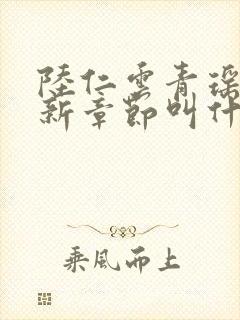 陸仁雲青瑤
新章節叫什
乘風而上